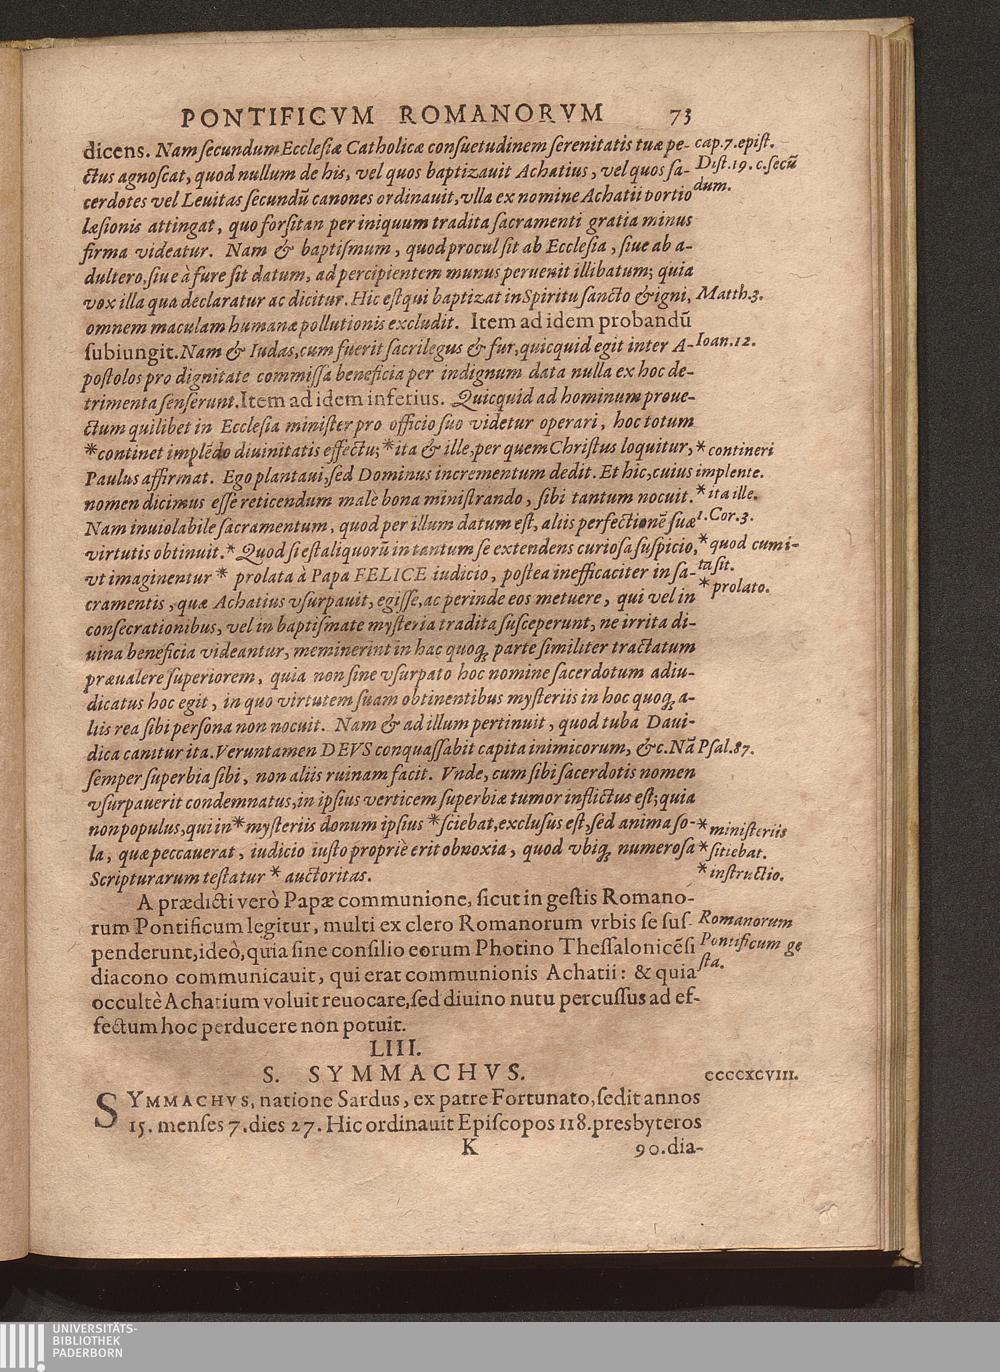 PONTIFICVM ROMANORVM 73
dicens. Nam secundum Ecclesiæ Catholicæ consuetudinem serenitatis tuæ pe- cap.7.epist.
ctus agnoscat, quod nullum de his, vel quos baptizauit Achatius, vel quos sa- Dist.19. c.secũ
cerdotes vel Leuitas secundũ canones ordinauit, vlla ex nomine Achatii portio dum.
læsionis attingat, quo forsitan per iniquum tradita sacramenti gratia minus
firma videatur. Nam & baptismum, quod procul sit ab Ecclesia, siue ab a-
dultero, siue à fure sit datum, ad percipientem munus peruenit illibatum; quia
vox illa qua declaratur ac dicitur. Hic est qui baptizat in Spiritu sancto & igni, Matth.3.
omnem maculam humanæ pollutionis excludit. Item ad idem probandũ
subiungit. Nam & Iudas, cum fuerit sacrilegus & fur, quicquid egit inter A- Ioan.12.
postolos pro dignitate commissa beneficia per indignum data nulla ex hoc de-
trimenta senserunt. Item ad idem inferius. Quicquid ad hominum proue-
ctum quilibet in Ecclesia minister pro officio suo videtur operari, hoc totum
*continet implẽdo diuinitatis effectu; *ita & ille, per quem Christus loquitur, * contineri
Paulus affirmat. Ego plantaui, sed Dominus incrementum dedit. Et hic, cuius implente.
nomen dicimus esse reticendum male bona ministrando, sibi tantum nocuit. * ita ille.
Nam inuiolabile sacramentum, quod per illum datum est, aliis perfectionẽ suæ 1.Cor.3.
virtutis obtinuit. * Quod si est aliquorũ in tantum se extendens curiosa suspicio, * quod cumi-
vt imaginentur * prolata à Papa FELICE iudicio, postea inefficaciter in sa- ta sit.
cramentis, quæ Achatius vsurpauit, egisse, ac perinde eos metuere, qui vel in * prolato.
consecrationibus, vel in baptismate mysteria tradita susceperunt, ne irrita di-
uina beneficia videantur, meminerint in hac quoq; parte similiter tractatum
præualere superiorem, quia non sine vsurpato hoc nomine sacerdotum adiu-
dicatus hoc egit, in quo virtutem suam obtinentibus mysteriis in hoc quoq; a-
liis rea sibi persona non nocuit. Nam & ad illum pertinuit, quod tuba Daui-
dica canitur ita. Veruntamen DEVS conquassabit capita inimicorum, &c. Nã Psal.87.
semper superbia sibi, non aliis ruinam facit. Vnde, cum sibi sacerdotis nomen
vsurpauerit condemnatus, in ipsius verticem superbiæ tumor inflictus est; quia
non populus, qui in * mysteriis donum ipsius * sciebat, exclusus est, sed anima so- * ministeriis
la, quæ peccauerat, iudicio iusto propriè erit obnoxia, quod vbiq; numerosa * sitiebat.
Scripturarum testatur * auctoritas. * instructio.
A prædicti verò Papæ communione, sicut in gestis Romano-
rum Pontificum legitur, multi ex clero Romanorum vrbis se sus- Romanorum
penderunt, ideò, quia sine consilio eorum Photino Thessalonicẽsi Pontificum ge
diacono communicauit, qui erat communionis Achatii: & quia sta.
occultè Achatium voluit reuocare, sed diuino nutu percussus ad ef-
fectum hoc perducere non potuit.
LIII.
S. SYMMACHVS. ccccxcviii.
SYMMACHVS, natione Sardus, ex patre Fortunato, sedit annos
15. menses 7. dies 27. Hic ordinauit Episcopos 118. presbyteros
K 90. dia-
UNIVERSITÄTS-
BIBLIOTHEK
PADERBORN